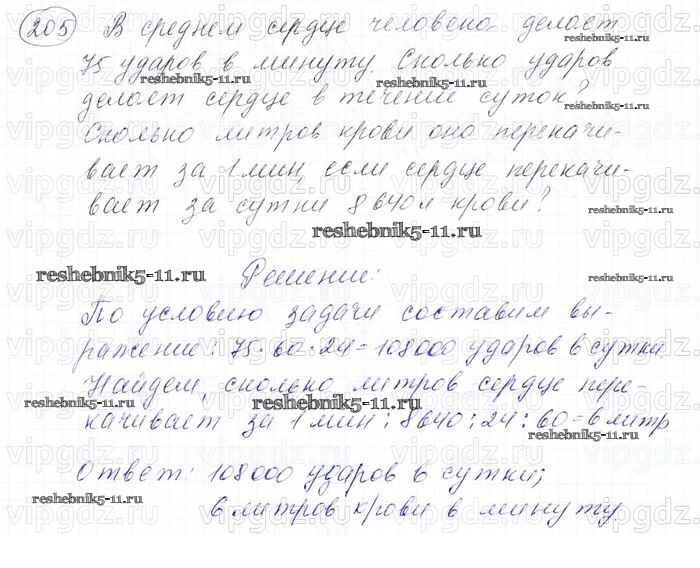 205 В среднем сердце человека делает
75 ударов в минуту. Сколько ударов
делает сердце в течении суток?
Сколько литров крови оно перекачи-
вает за 1 мин, если сердце перекачи-
вает за сутки 8640 л крови?
Решение:
По условию задачи составим вы-
ражение: 75·60·24=108000 ударов в сутки.
Найдем, сколько литров сердце пере-
качивает за 1 мин: 8640:24:60=6 литр
Ответ: 108000 ударов в сутки;
6 литров крови в минуту
reshebnik5-11.ru
vipgdz.ru